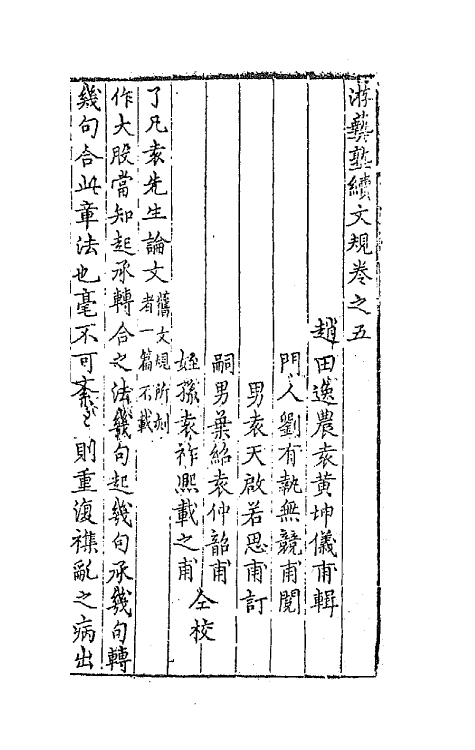 游藝塾續文規卷之五
趙田逸農袁黃坤儀甫輯
門人劉有執無競甫閱
男袁天啟若思甫訂
嗣男葉紹袁仲韶甫
姪孫袁祚熈載之甫
仝校
了凡袁先生論文舊文規所刻者一篇不載
作大股當知起承轉合之法幾句起幾句承幾句轉
幾句合此章法也毫不可紊紊則重復襍亂之病出